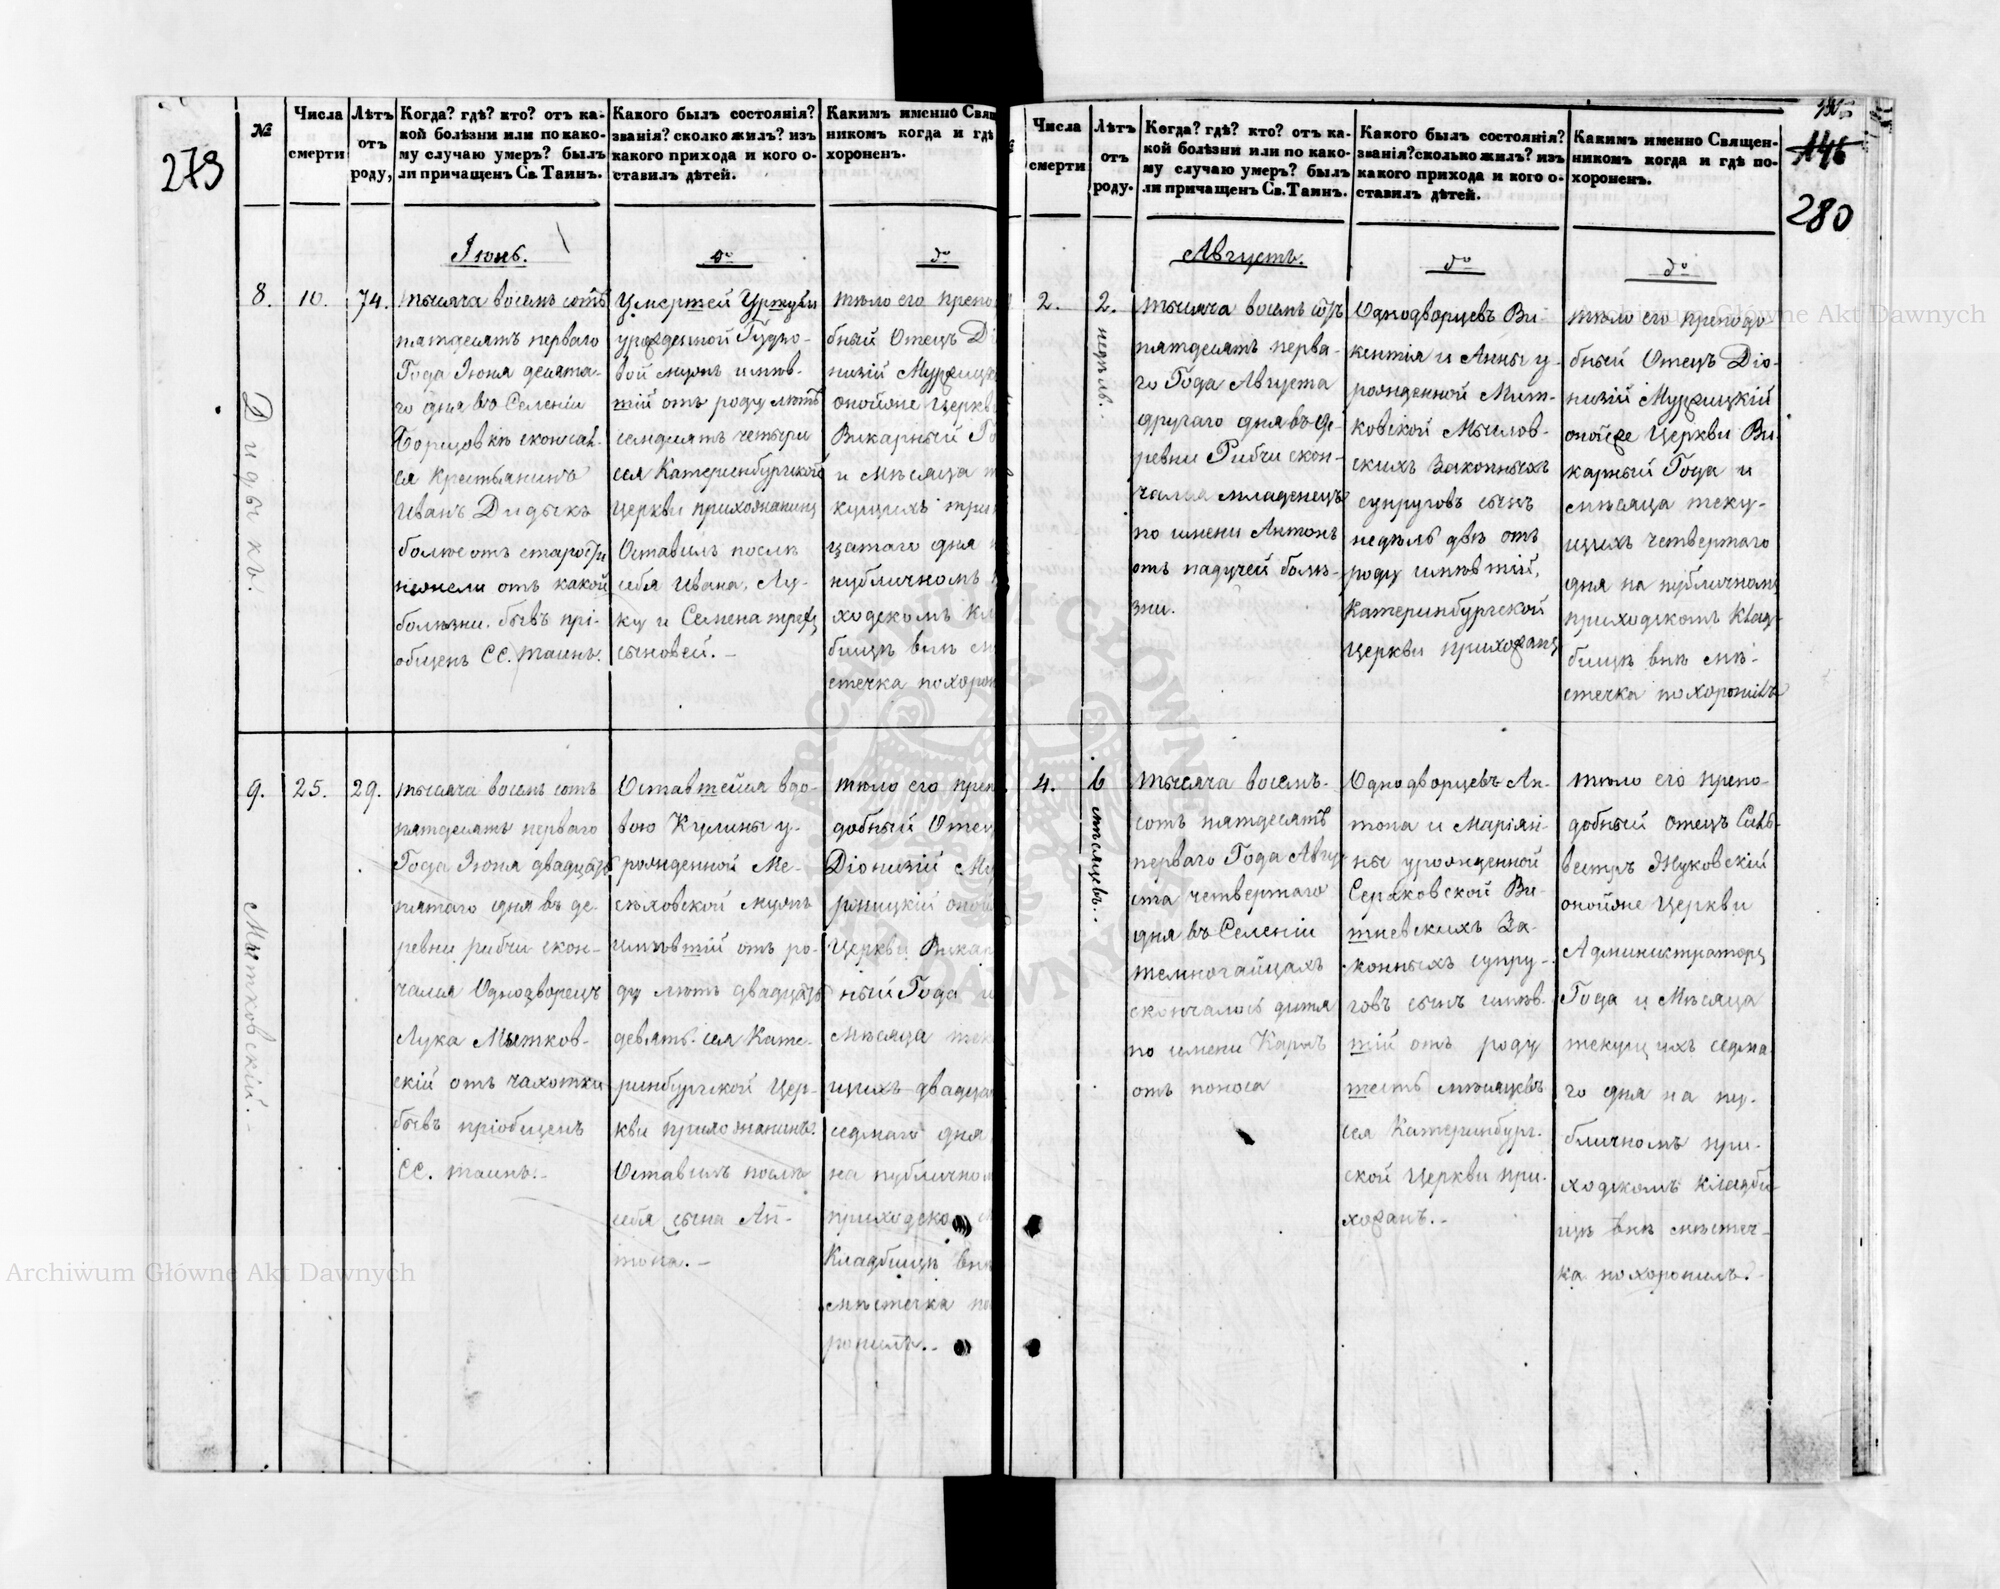 279
№
Числа смерти
Лѣтъ отъ роду,
Когда? гдѣ? кто? отъ ка-
кой болѣзни или по како-
му случаю умеръ? былъ
ли причащенъ Св. Таинъ.
Какого былъ состоянія?
званія? сколко жилъ? изъ
какого прихода и кого о-
ставилъ дѣтей.
Какимъ именно Свящ
никомъ когда и гдѣ
хороненъ.
Іюнь.
до
до
8.
10.
74.
Дидыкъ.
тысяча восемь сотъ
пятдесятъ перваго
Года Іюня десята-
го дня въ Селеніи
Борщовкѣ скончал-
ся Крестьянинъ
Иванъ Дидыкъ
болѣе отъ старости
нежели отъ какой
болѣзни. бывъ прі-
общенъ СС. таинъ.
Умершей
урожденной Гудзо-
вой мужъ имѣв-
шій отъ роду лѣтъ
семдесятъ четыри
сея Катеринбургской
Церкви прихожанинъ
Оставилъ послѣ
себя Ивана, Лу-
ку и Семена трехъ
сыновей. —
тѣло его препо
бный Отецъ Ді
низій Муржицк
онойже Церкв
Викарный Го
и мѣсяца т
кущихъ три
цатаго дня н
публичномъ
ходскомъ Кл
бищѣ внѣ мѣ
стечка похорон
9.
25.
29.
Мытковскій. —
тысяча восемь сотъ
пятдесятъ перваго
Года Іюня двадцать
пятаго дня въ де-
ревни рибчи скон-
чался Однодворецъ
Лука Мытков-
скій отъ чахотки
бывъ пріобщенъ
СС. таинъ. —
Оставшейся вдо-
вою Кулины у-
рожденной Ме-
сѣловской мужъ
имѣвшій отъ ро-
ду лѣтъ двадцать
девять. сея Кате-
ринбургской Цер-
кви прихожанинъ.
Оставилъ послѣ
себя сына Ан-
тона. —
тѣло его преп
добный Отец
Діонизій Му
ржицкій оной
Церкви Викар
ный Года и
мѣсяца тек
щихъ двадца
седмаго дня
на публично
приходско
Кладбищѣ внѣ
мѣстечка по
ронилъ. —
146
280
Числа смерти
Лѣтъ отъ роду.
Когда? гдѣ? кто? отъ ка-
кой болѣзни или по како-
му случаю умеръ? былъ
ли причащенъ Св. Таинъ.
Какого былъ состоянія?
званія? сколько жилъ? изъ
какого прихода и кого о-
ставилъ дѣтей.
Какимъ именно Священ-
никомъ когда и гдѣ по-
хороненъ.
Августъ.
до
до
2.
2. недѣль.
тысяча восемь сотъ
пятдесятъ перва-
го Года Августа
другаго дня въ де-
ревни Рибчи скон-
чался младенецъ
по имени Антонъ
отъ падучей болѣ-
зни.
Однодворцевъ Ви-
кентія и Анны у-
рожденной Мит-
ковской Мысловскихъ
Законныхъ
супруговъ сынъ
недѣль двѣ отъ
роду имѣвшій,
Катеринбургской
Церкви прихожанъ
тѣло его преподо-
бный Отецъ Діо-
низій Муржицкій
онойже Церкви Ви-
карный Года и
мѣсяца теку-
щихъ четвертаго
дня на публичномъ
приходскомъ Клад-
бищѣ внѣ мѣ-
стечка похоронилъ
4.
6 мѣсяцевъ.
тысяча восемь-
сотъ пятдесятъ
перваго Года Авгу-
ста четвертаго
дня въ Селеніи
темногайцахъ
скончалось дитя
по имени Каролъ
отъ поноса
Однодворцевъ Ан-
тона и Маріян-
ны урожденной
Сераковской Ви-
шневскихъ За-
конныхъ супру-
говъ сынъ имѣв-
шій отъ роду
шесть мѣсяцевъ
сея Катеринбург-
ской Церкви при-
хожанъ. —
тѣло его препо
добный отецъ Силь-
вестръ Жуковскій
онойже Церкви
Администраторъ
Года и Мѣсяца
текущихъ седма-
го дня на пу-
бличномъ при-
ходскомъ Кладби-
щѣ внѣ мѣстеч-
ка похоронилъ. —
Archiwum Główne Akt Dawnych